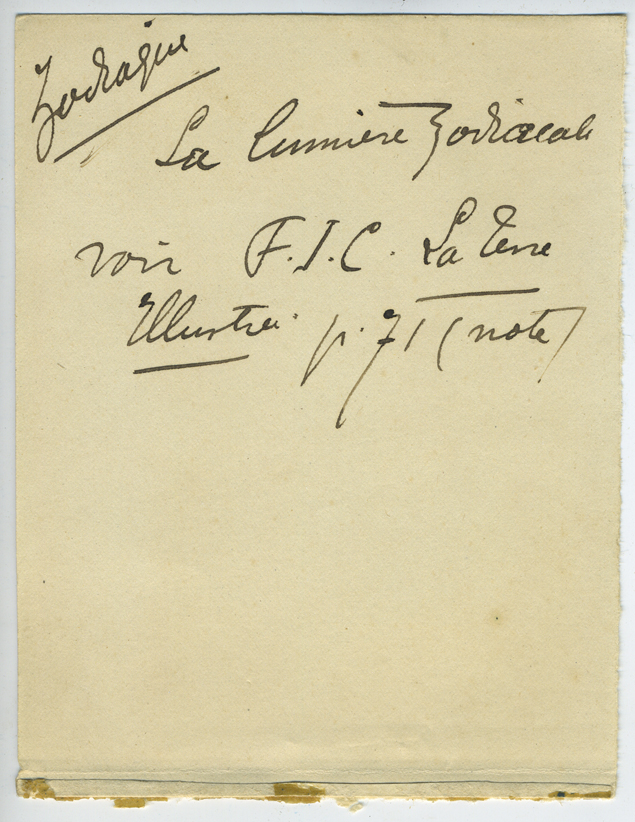 Zodiaque
La lumière Zodiacale
voir F.I.C. La Terre
Illustrée p. 71 (note)